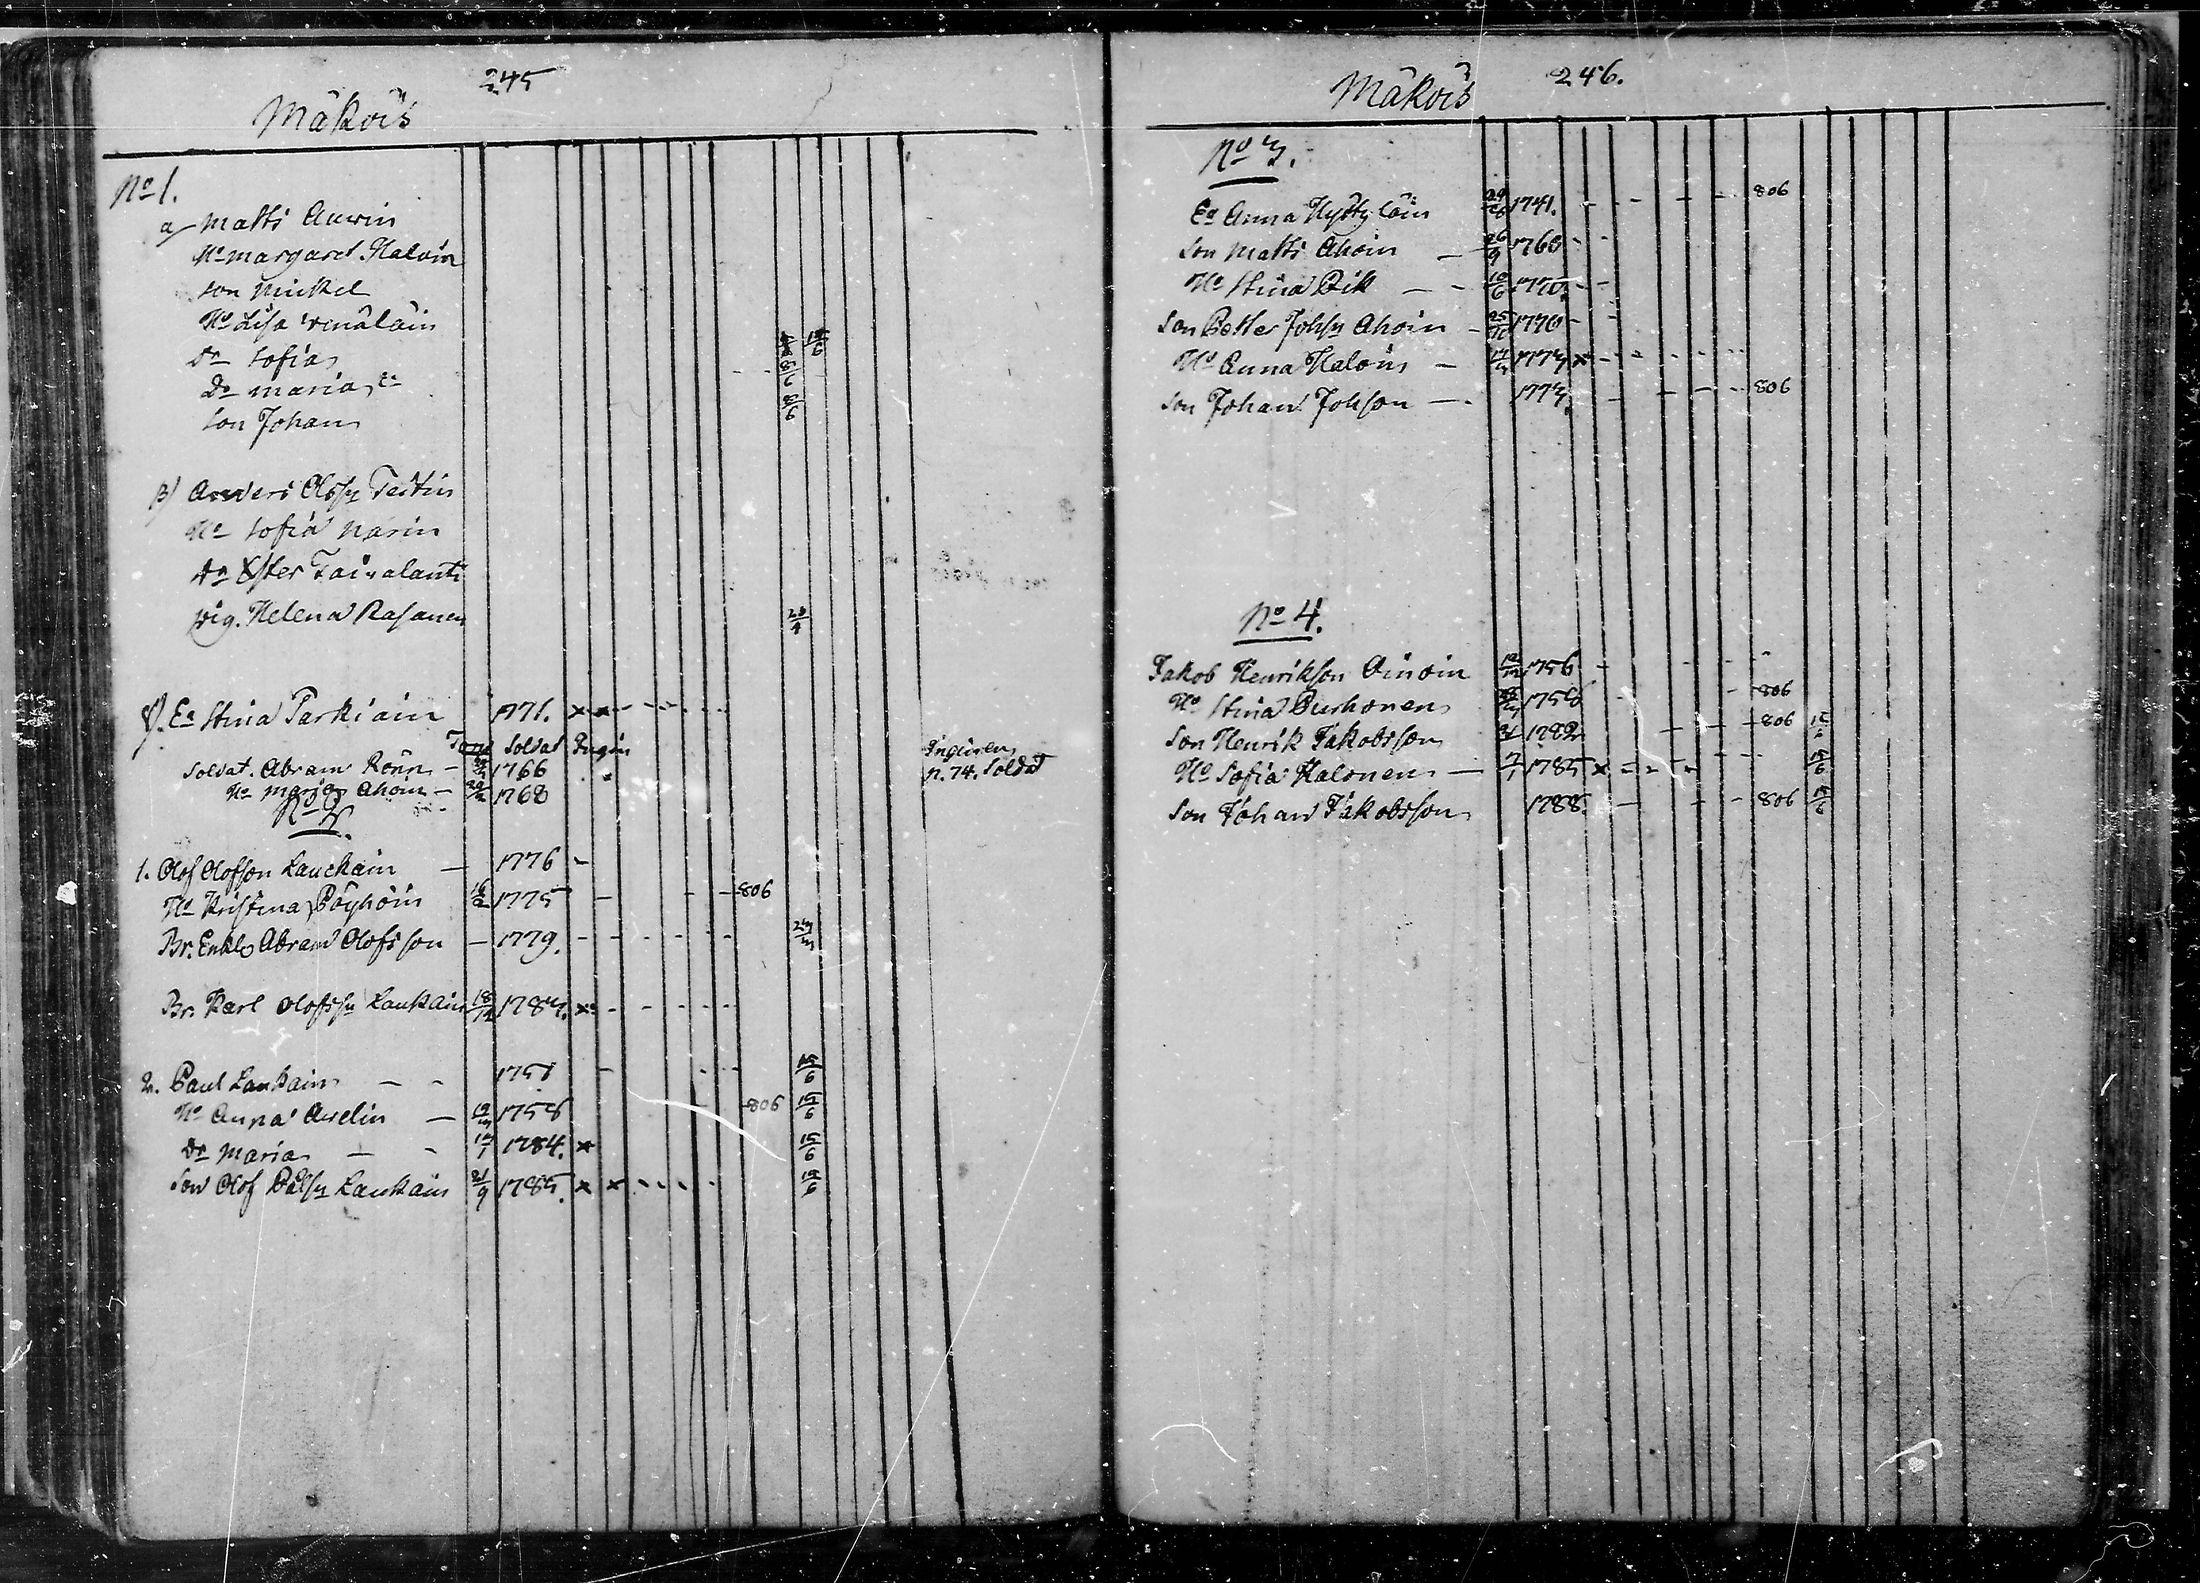 245
Mäkois
No 1.
a Matti Auvin
Ho Margaret Haloin
Son Mickel
Ho Lisa Venäläin
Dr Sofia
Dr Maria
Son Johan
15/6
8/6
8/6
β) Anders Olssn Testin
Ho Sofia Narin
Ester Taivalanti
pig. Helena Rasanen 28/4
γ. Ea Stina Parkiain 1771. x x
Soldat
Soldat. Abram Rönn 1766 n. 74. Soldat
Ho Maria Ahoin 1768
No 2.
1. Olof Olofson Lauckain 1776
Ho Kristina Pöyhöin 16/2 1775 806
Br. Enkl. Abram Olofsson 1779.
Br. Karl Olofssn Laukain 18/12 1783. x
2. Paul Laukain 1751 15/6
Ho Anna Auvelin 1758 806 15/6
Dr Maria 1784. x 15/6
Son Olof Pålsn Laukain 21/9 1785. x x 15/6
246.
Mäkois
No 3.
Ea Anna Hyttyläin 1741. 806
Son Matti Ahoin 26/9 1768
Ho Stina Pik 10/6 1770.
Son Petter Johsn Ahoin 1770
Ho Anna Haloin 1773 x
Son Johan Johson 1773. 806
No 4.
Jakob Henrikson Oinoin 12/12 1756
Ho Stina Purhonen 1758 806
Son Henrik Jakobsson 1782 806
Ho Sofia Halonen 7/1 1785 x 15/6
Son Johan Jakobsson 1788. 806 15/6